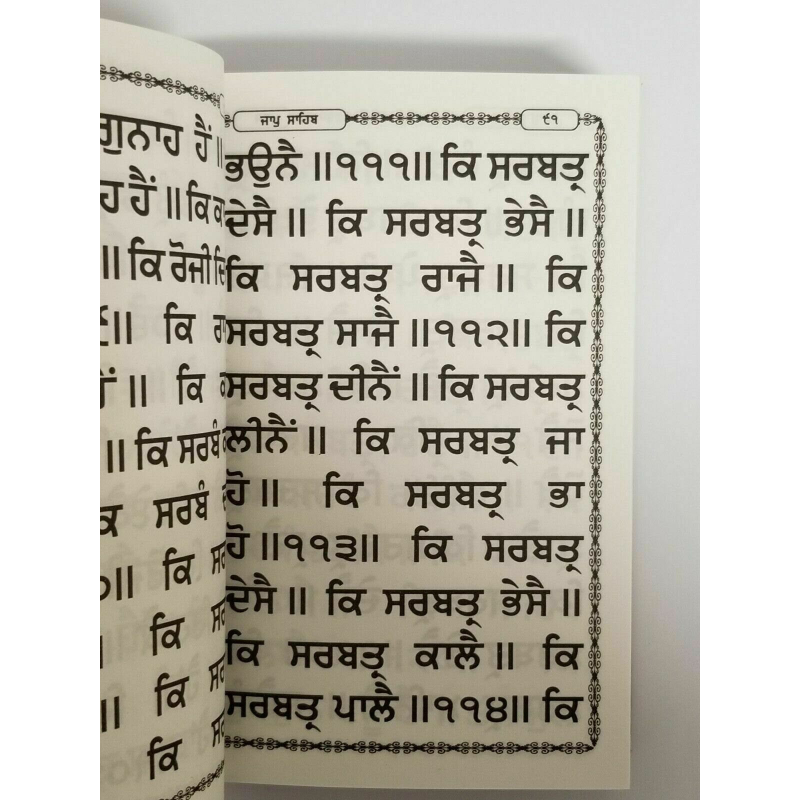 ਗੁਨਾਹ ਹੈਂ ॥
ਹ ਹੈਂ ॥ ਕਿ
॥ ਕਿ ਰੋਜੀ
॥ ਕਿ
॥ ਕਿ
॥ ਕਿ ਸਰਬੰ
ਸਰਬੰ
॥ ਕਿ
ਕਿ
॥ ਕਿ
ਕਿ
ਜਾਪੁ ਸਾਹਿਬ ੯੧
ਭਉਨੈ ॥੧੧੧॥ ਕਿ ਸਰਬਤ੍ਰ
ਦੇਸੈ ॥ ਕਿ ਸਰਬਤ੍ਰ ਭੇਸੈ ॥
ਕਿ ਸਰਬਤ੍ਰ ਰਾਜੈ ॥ ਕਿ
ਸਰਬਤ੍ਰ ਸਾਜੈ ॥੧੧੨॥ ਕਿ
ਸਰਬਤ੍ਰ ਦੀਨੈਂ ॥ ਕਿ ਸਰਬਤ੍ਰ
ਲੀਨੈਂ ॥ ਕਿ ਸਰਬਤ੍ਰ ਜਾ
ਹੋ ॥ ਕਿ ਸਰਬਤ੍ਰ ਭਾ
ਹੋ ॥੧੧੩॥ ਕਿ ਸਰਬਤ੍ਰ
ਦੇਸੈ ॥ ਕਿ ਸਰਬਤ੍ਰ ਭੇਸੈ ॥
ਕਿ ਸਰਬਤ੍ਰ ਕਾਲੈ ॥ ਕਿ
ਸਰਬਤ੍ਰ ਪਾਲੈ ॥੧੧੪॥ ਕਿ